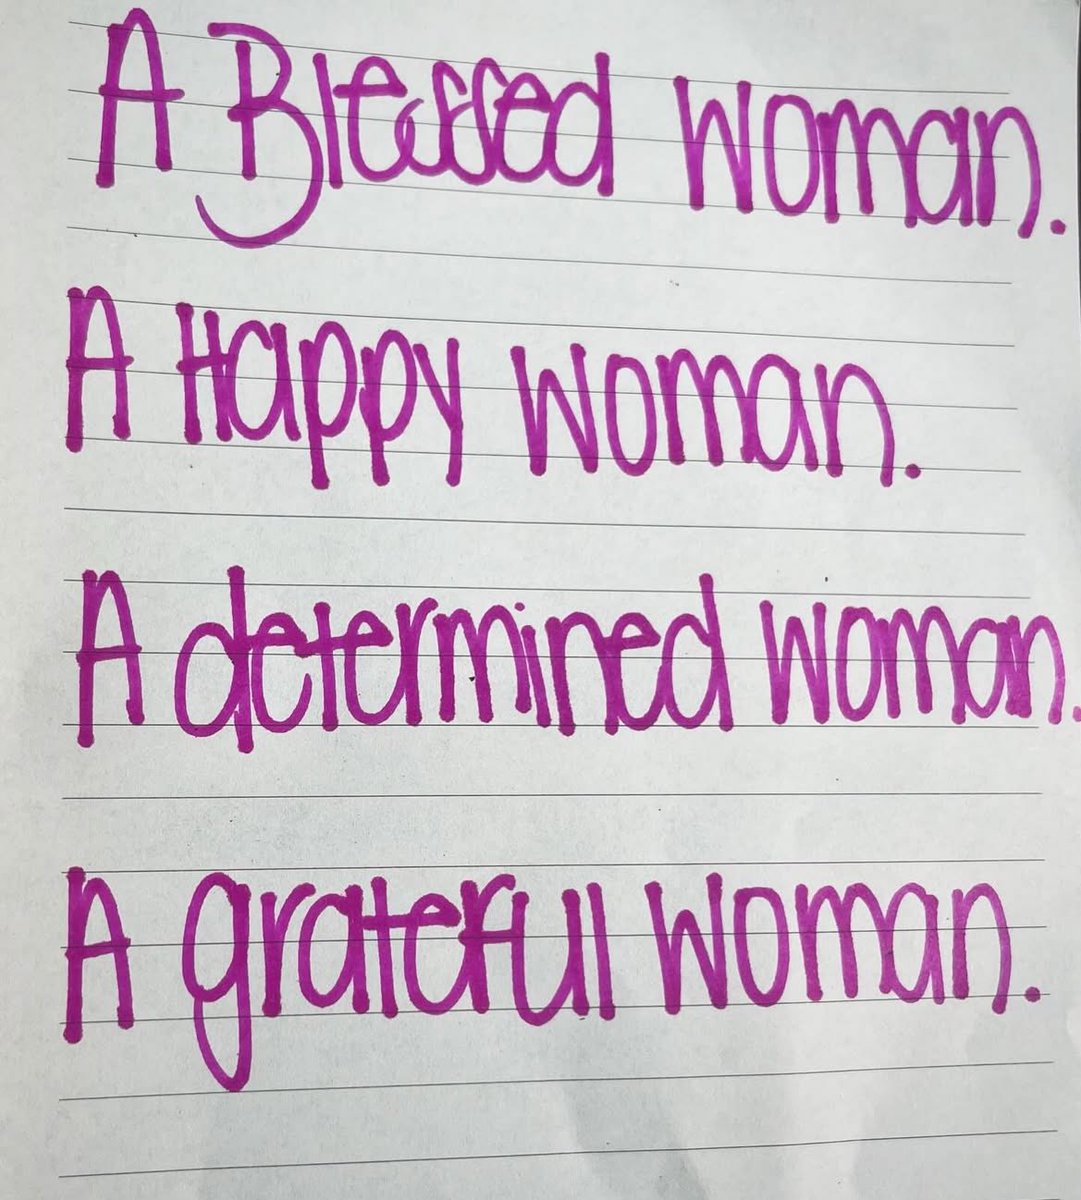 A Blessed woman.
A Happy woman.
A determined woman.
A grateful woman.